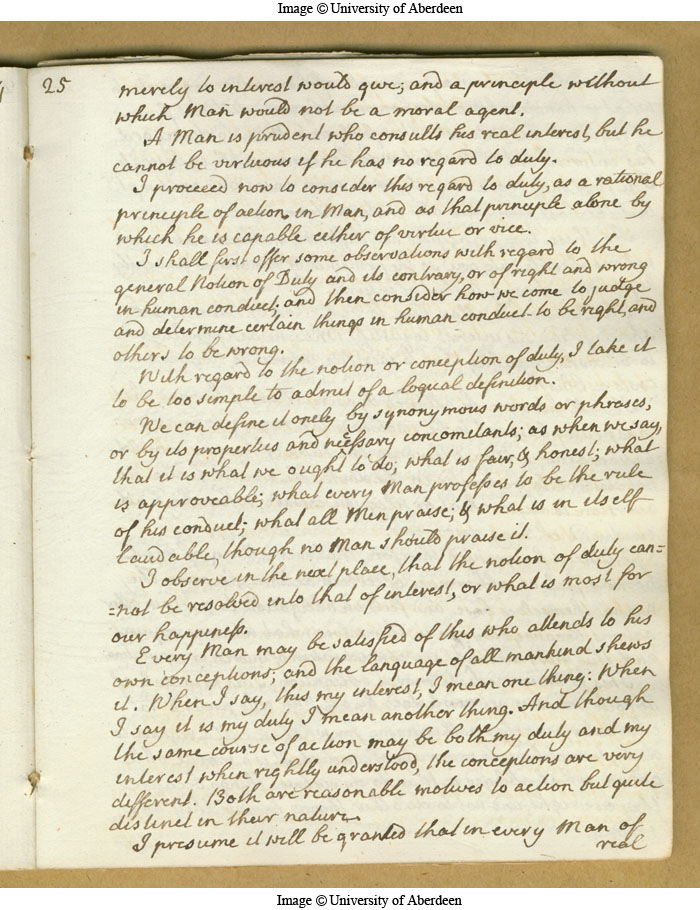 Image © University of Aberdeen
25
merely to interest would give; and a principle without
which Man would not be a moral agent.
A Man is prudent who consults his real interest, but he
cannot be virtuous if he has no regard to duty.
I proceed now to consider this regard to duty, as a rational
principle of action in Man, and as that principle alone by
which he is capable either of virtue or vice.
I shall first offer some observations with regard to the
general Notion of Duty and its contrary, or of right and wrong
in human conduct; and then consider how we come to judge
and determine certain things in human conduct to be right, and
others to be wrong.
With regard to the notion or conception of duty, I take it
to be too simple to admit of a logical definition.
We can define it onely by synonymous words or phrases,
or by its properties and necessary concomitants; as when we say,
that it is what we ought to do, what is fair, & honest; what
is approveable; what every Man professes to be the rule
of his conduct; what all Men praise; & what is in itself
laudable, though no Man should praise it.
I observe in the next place, that the notion of duty can=
=not be resolved into that of interest, or what is most for
our happiness.
Every Man may be satisfied of this who attends to his
own conceptions; and the language of all mankind shews
it. When I say, this my interest, I mean one thing: When
I say it is my duty I mean another thing. And though
the same course of action may be both my duty and my
interest when rightly understood, the conceptions are very
different. Both are reasonable motives to action but quite
distinct in their nature.
I presume it will be granted that in every Man of
real
Image © University of Aberdeen